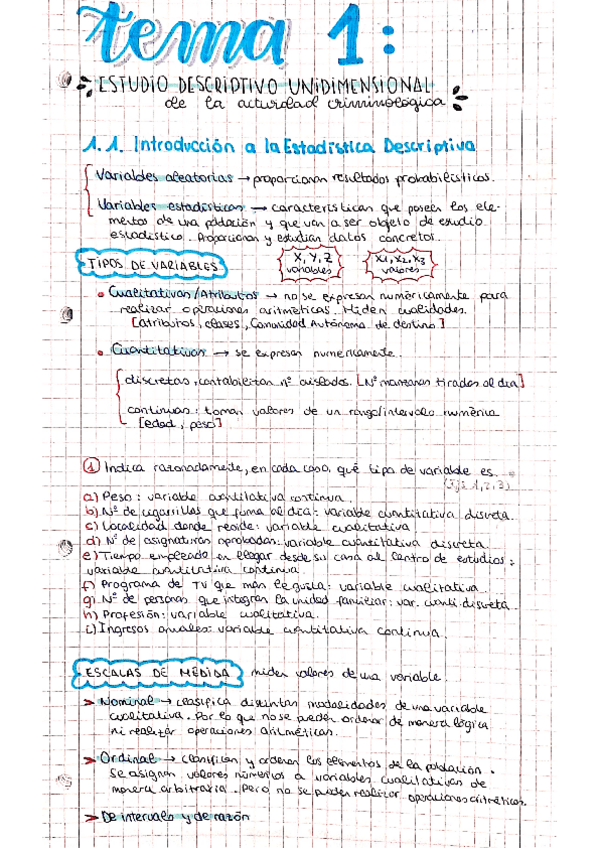 tema 1:
ESTUDIO DESCRIPTIVO UNIDIMENSIONAL
de la actividad criminológica
1.1. Introducción a la Estadística Descriptiva
Variables aleatorias → proporcionan resultados probabilísticos.
Variables estadísticas → características que poseen los ele-
mentos de una población y que van a ser objeto de estudio
estadístico. Proporcionan y estudian datos concretos.
TIPOS DE VARIABLES
X, Y, Z
variables
X1, X2, X3
valores
• Cualitativas/Atributos → no se expresan numéricamente para
realizar operaciones aritméticas. Miden cualidades.
[atributos, clases, Comunidad Autónoma de destino]
• Cuantitativas → se expresan numéricamente.
discretas: contabilizan nº aislados. [Nº manzanas tirados al día]
continuas: toman valores de un rango/intervalo numérico
[edad, peso]
① Indica razonadamente, en cada caso, qué tipo de variable es.
a) Peso: variable cuantitativa continua.
b) Nº de cigarrillos que fuma al día: variable cuantitativa discreta.
c) Localidad donde reside: variable cualitativa
d) Nº de asignaturas aprobadas: variable cuantitativa discreta
e) Tiempo empleado en llegar desde su casa al centro de estudios:
variable cuantitativa continua
f) Programa de TV que más le gusta: variable cualitativa
g) Nº de personas que integran la unidad familiar: var. cuanti. discreta
h) Profesión: variable cualitativa.
i) Ingresos anuales: variable cuantitativa continua.
ESCALAS DE MEDIDA miden valores de una variable.
➢ Nominal → clasifica distintas modalidades de una variable
cualitativa. Por lo que no se pueden ordenar de manera lógica
ni realizar operaciones aritméticas.
➢ Ordinal → clasifican y ordenan los elementos de la población.
Se asignan valores númericos a variables cualitativas de
manera arbitraria. Pero no se pueden realizar operaciones aritméticas.
➢ De intervalo y de razón